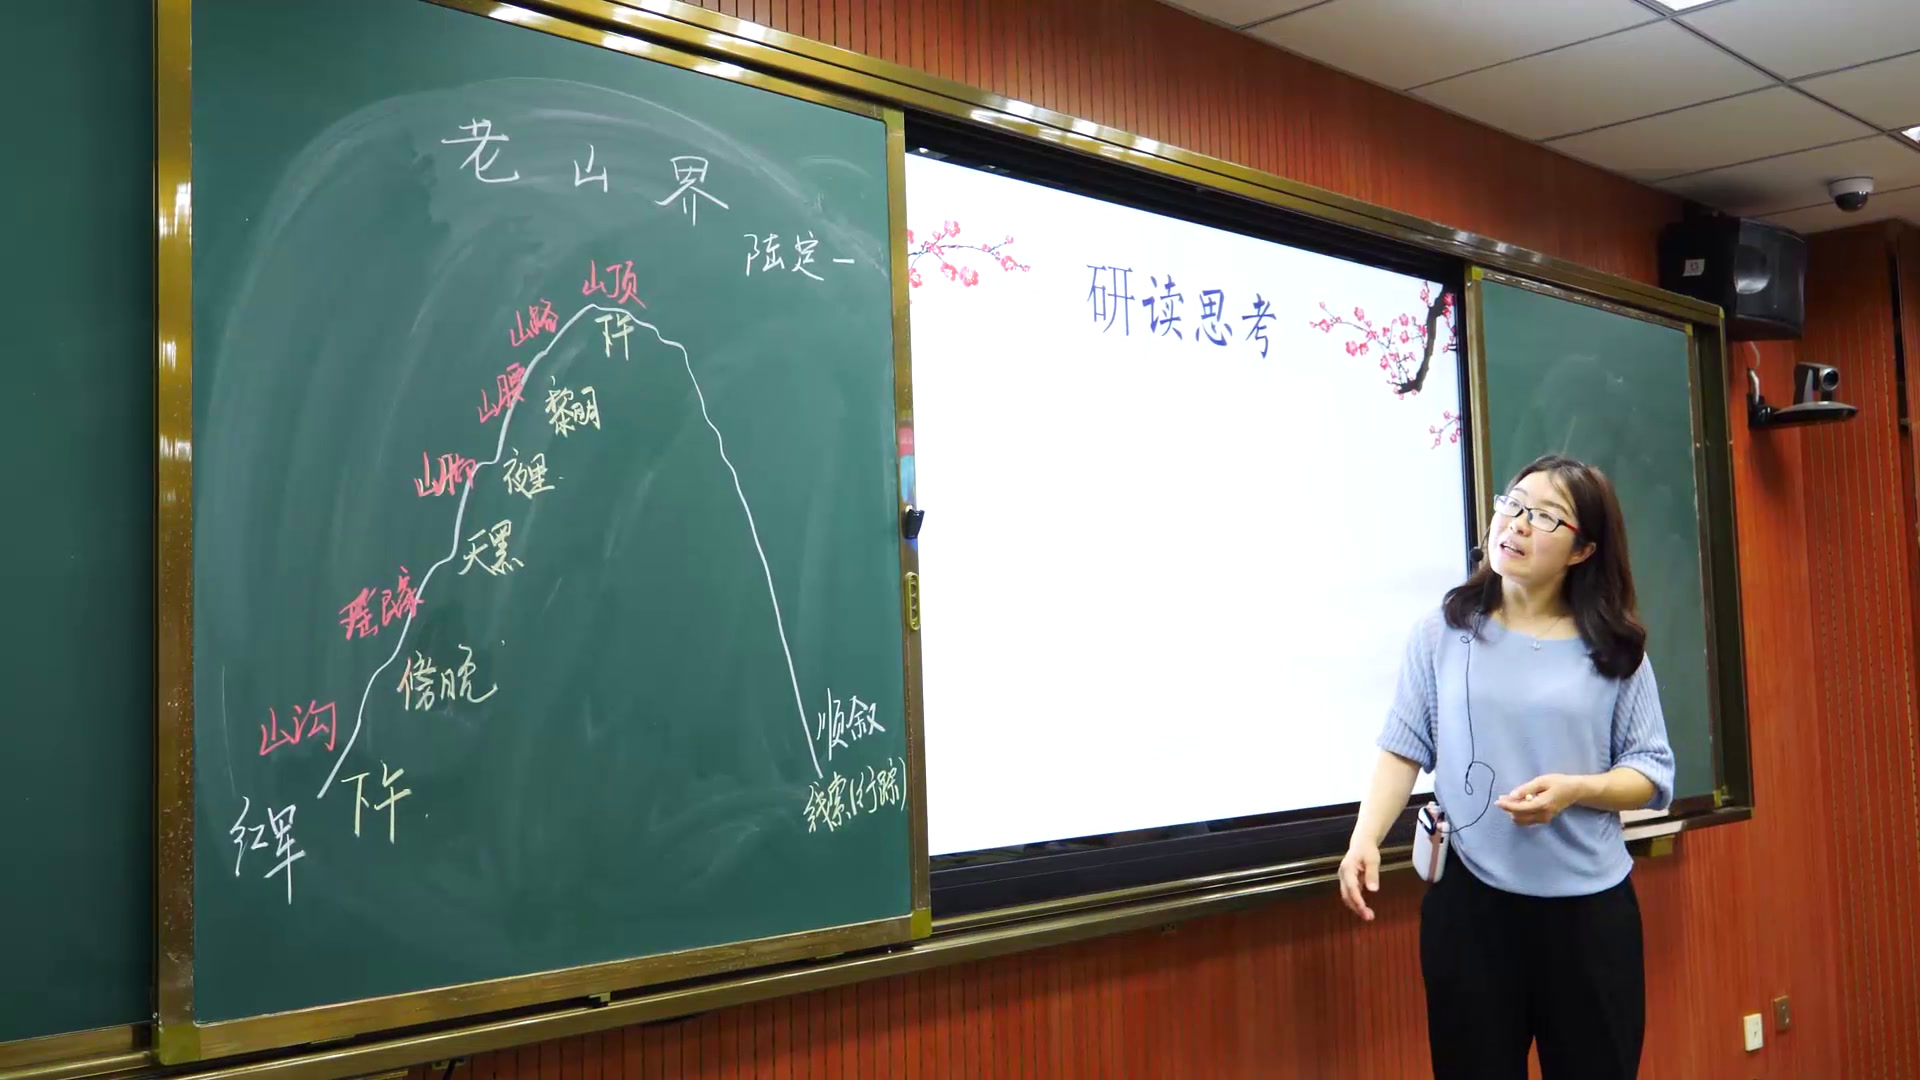 老山界
陆定一
山顶
下午
山路
山腰
黎明
山脚
夜里
天黑
瑶民家
傍晚
山沟
下午
红军
顺叙
线索(行踪)
研读思考